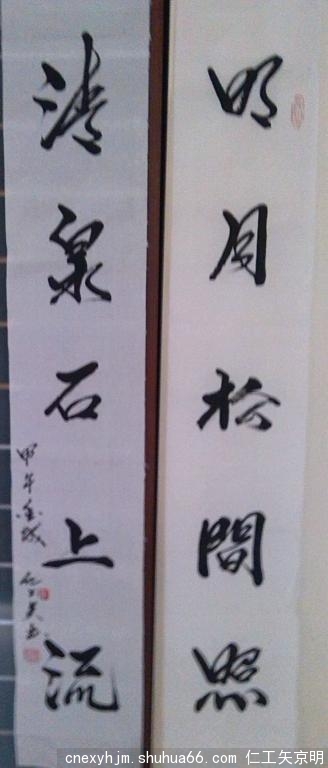 明月松間照
清泉石上流
甲午金城
cnexyhjm.shuhua66.com 仁工矢京明